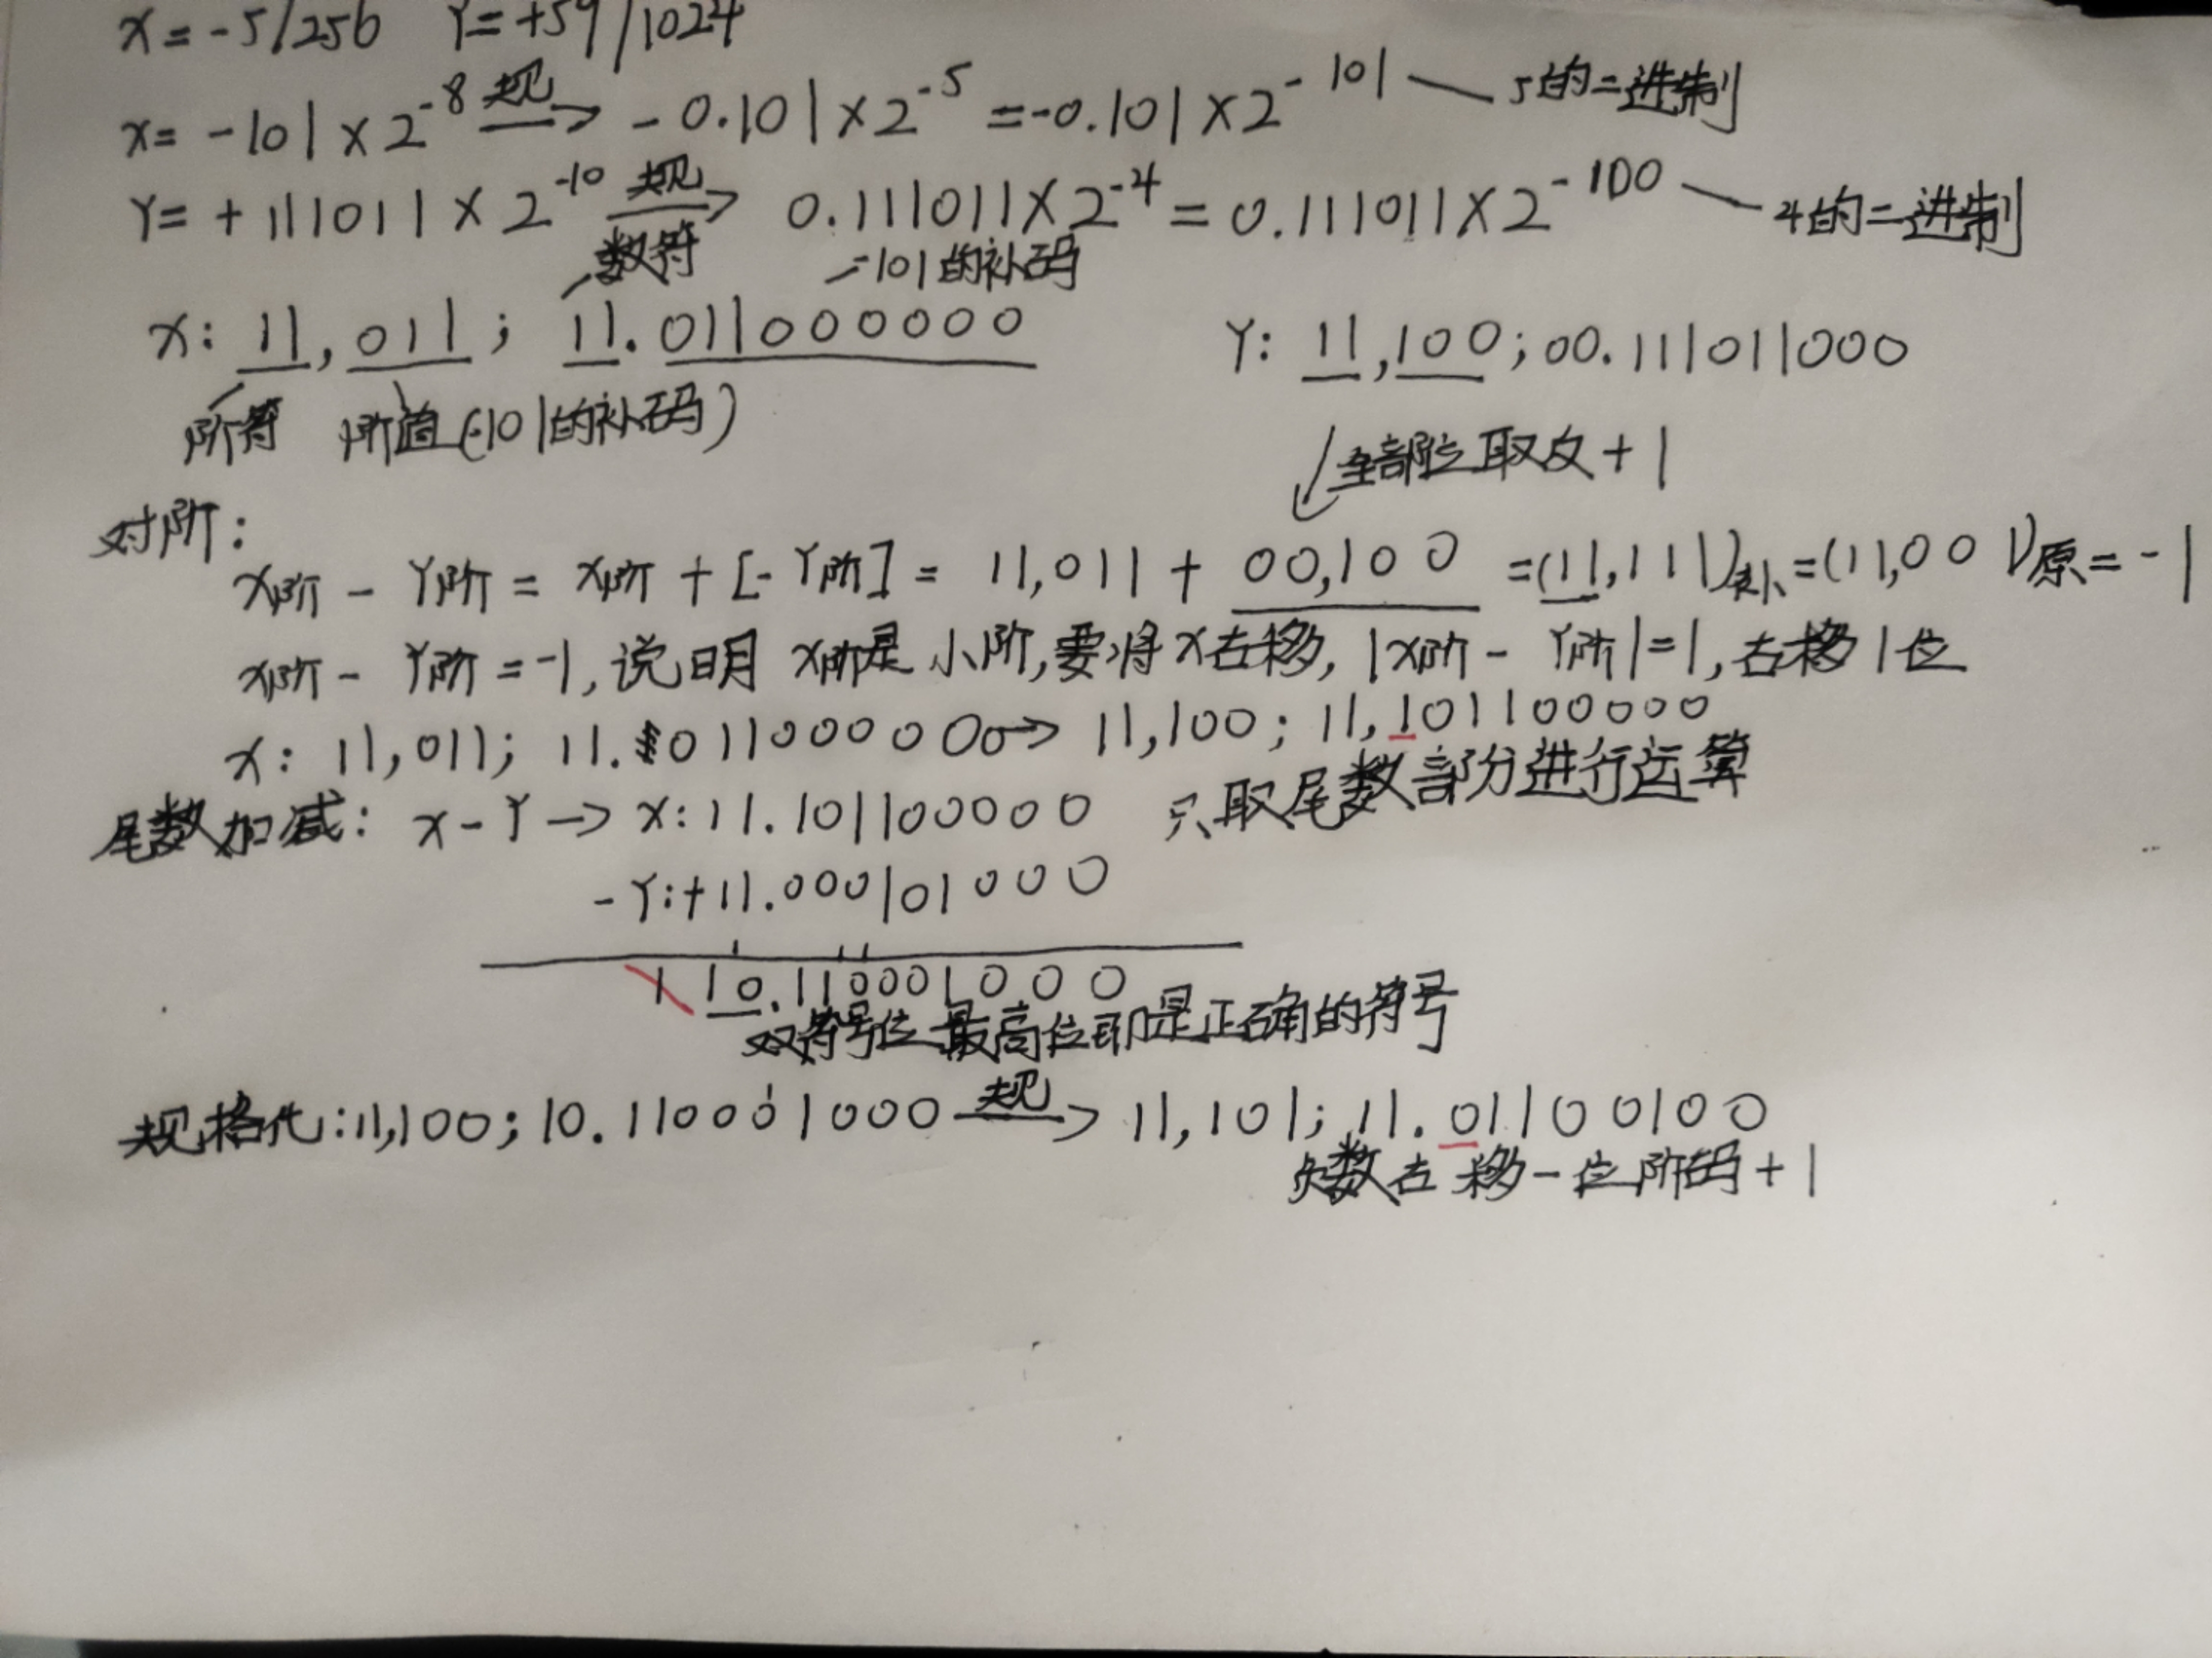 x=-5/256 Y=+59/1024
x=-101×2^-8 规→ -0.101×2^-5 =-0.101×2^-101 — 5的二进制
Y=+111011×2^-10 规→ 0.111011×2^-4=0.111011×2^-100 — 4的二进制
数符 -101的补码
x: 11,011; 11.011000000 Y: 11,100;00.111011000
阶符 阶值(-101的补码)
全部位取反+1
对阶:
x阶-Y阶=x阶+[-Y阶]=11,011+00,100=(11,111)补=(11,001)原=-1
x阶-Y阶=-1,说明x阶是小阶,要将x右移,|x阶-Y阶|=1,右移1位
x: 11,011; 11.011000000→11,100; 11,101100000
尾数加减: x-Y→x:11.101100000 只取尾数部分进行运算
-Y:+11.000101000
1 10.110001000
双符号位最高位即是正确的符号
规格化:11,100;10.110001000 规→ 11,101;11.011000100
负数右移一位阶码+1